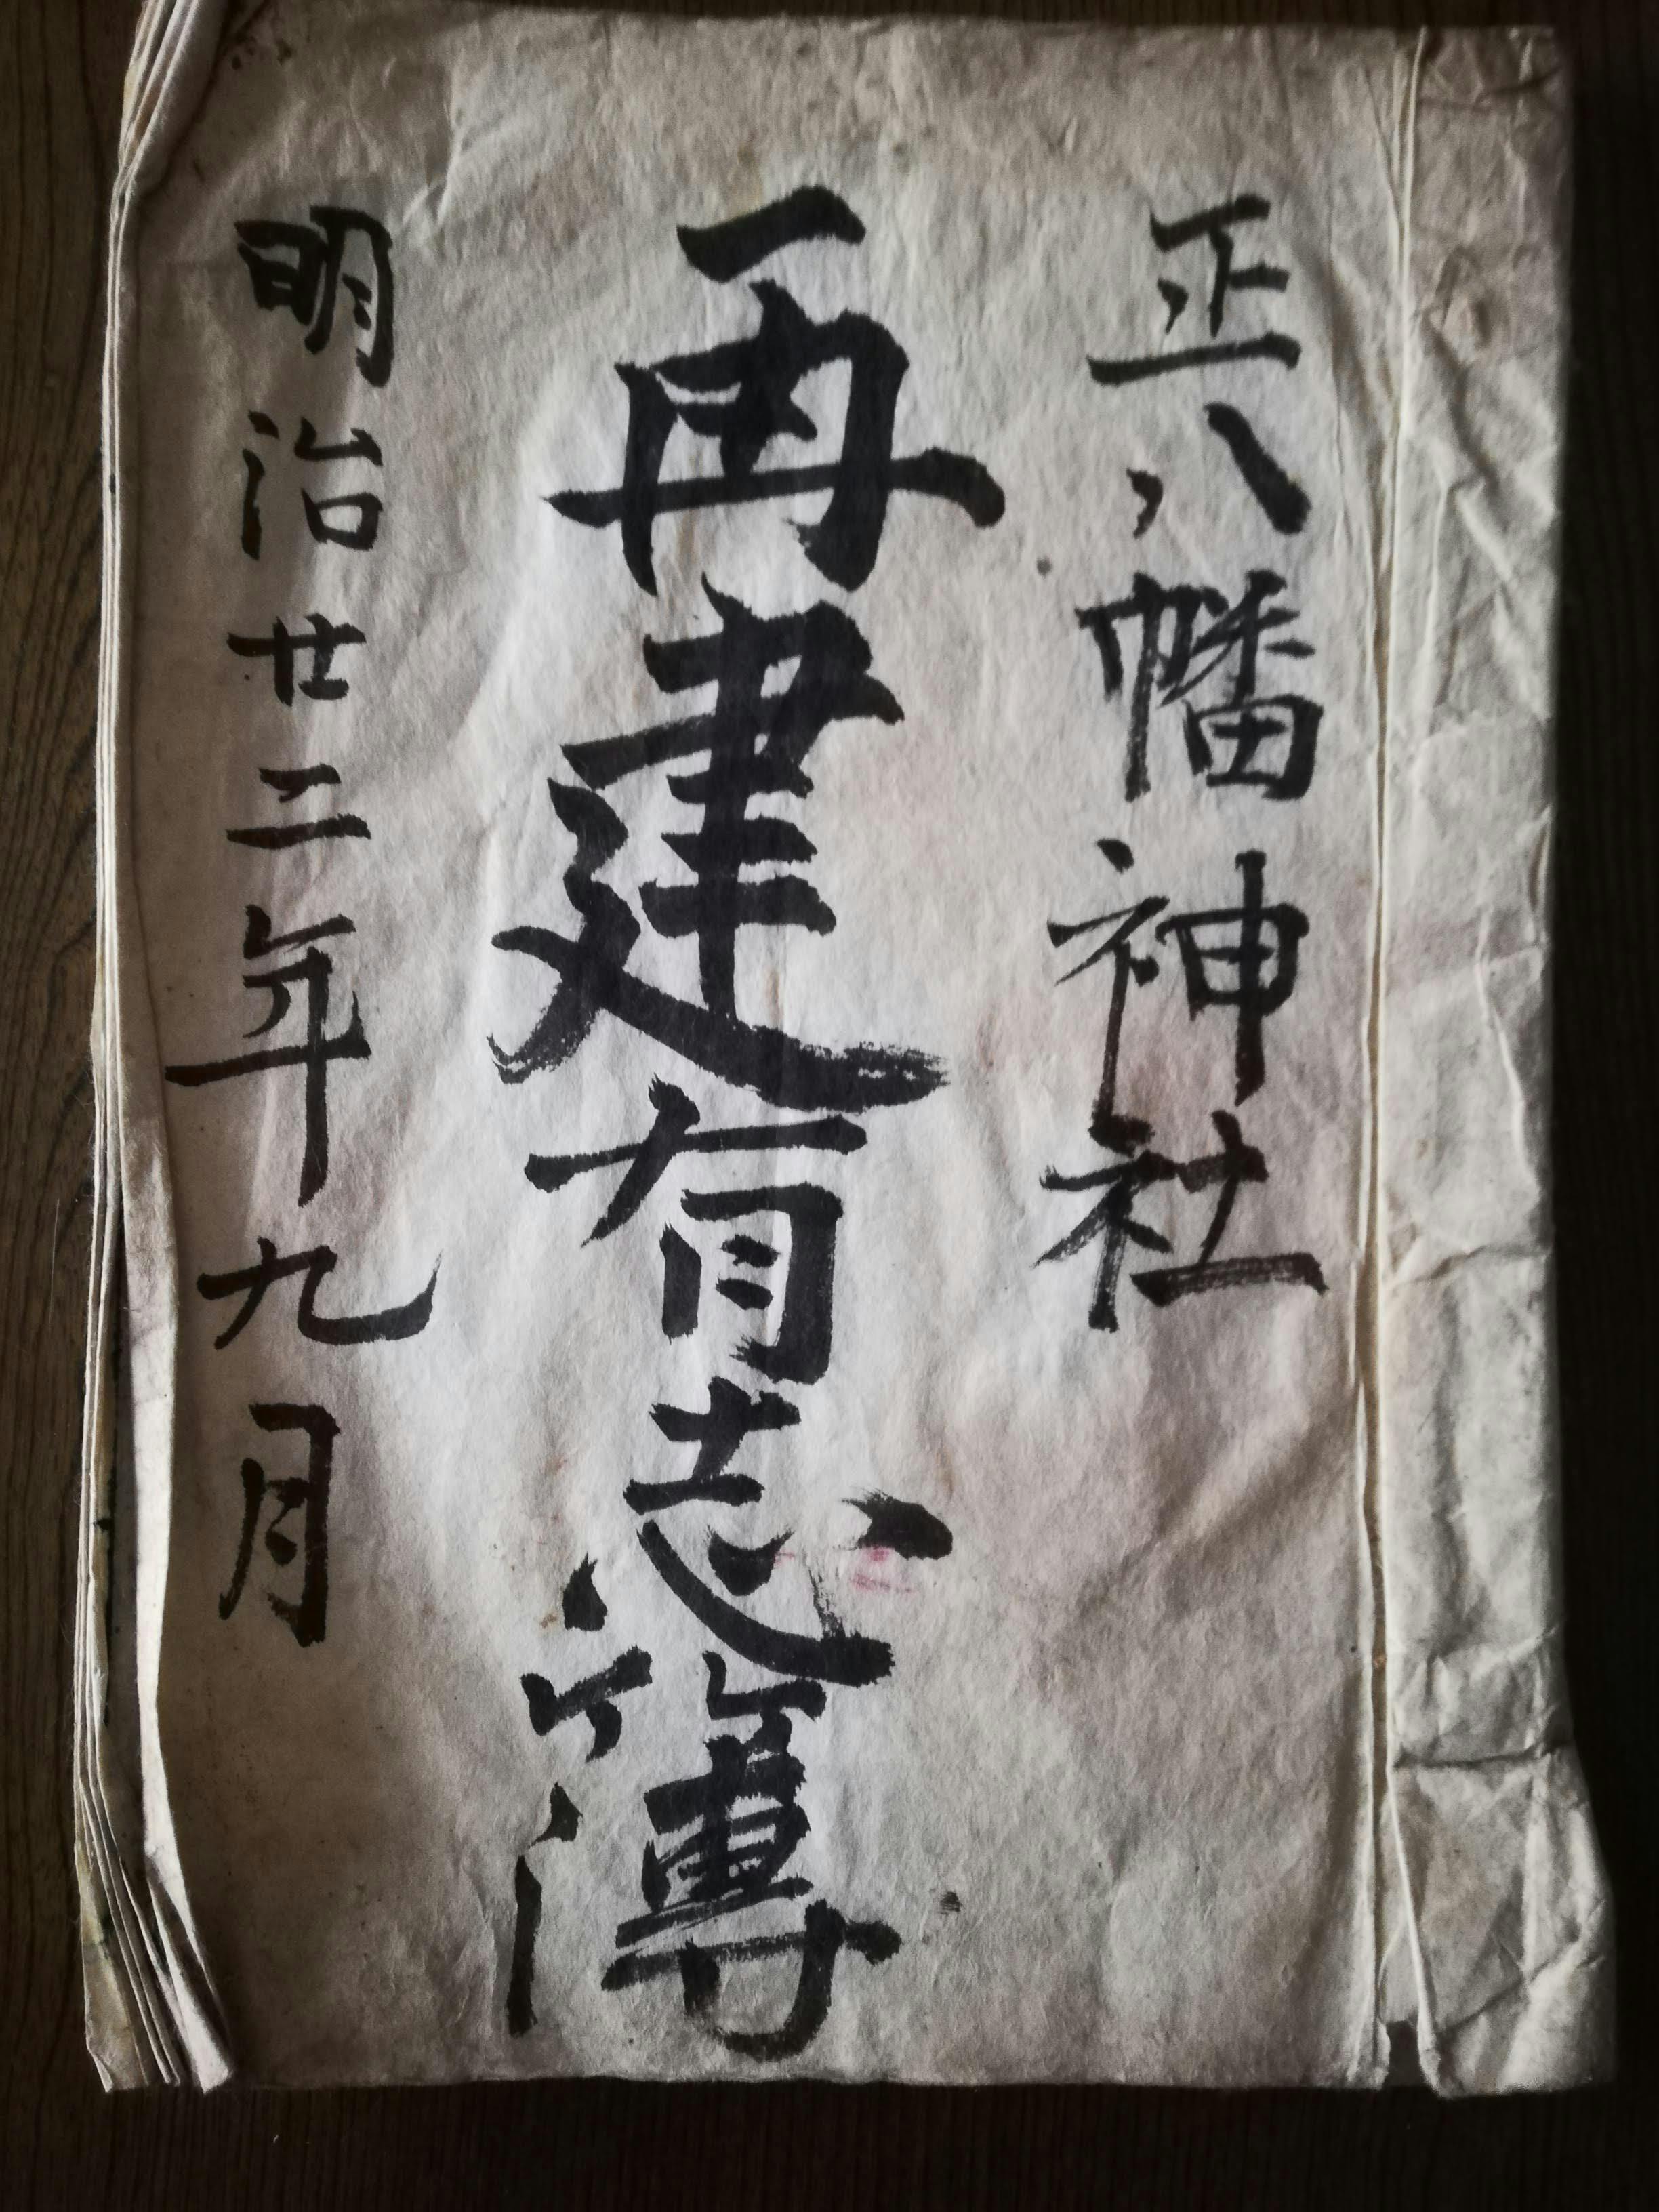 正八幡神社
再建有志簿
明治廿二年九月